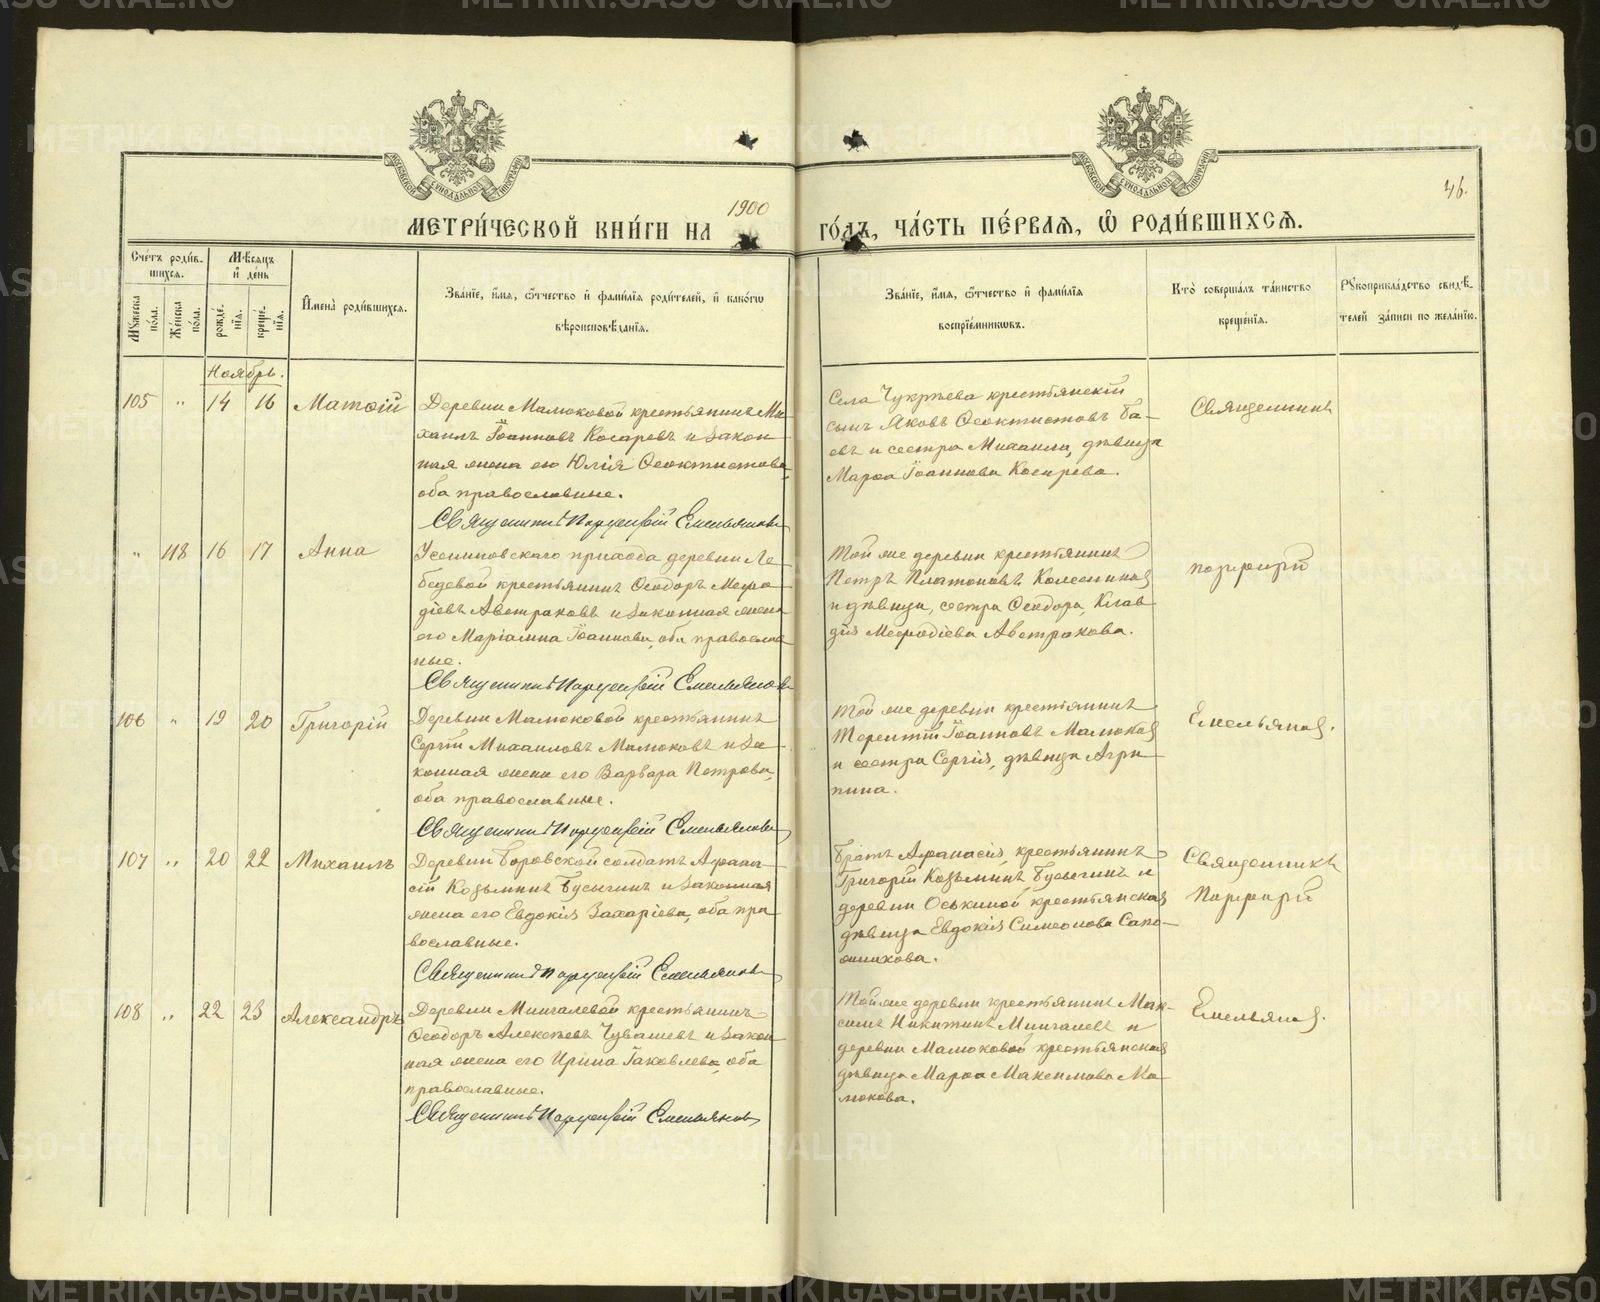 METRIKI.GASO-URAL.RU
46.
МОСКОВСКОЙ СѴНОДАЛЬНОЙ ТИПОГРАФІИ
МОСКОВСКОЙ СѴНОДАЛЬНОЙ ТИПОГРАФІИ
МЕТРИ́ЧЕСКОЙ КНИ́ГИ НА 1900 ГО́ДЪ, ЧА́СТЬ ПЕ́РВАЯ, Ѡ҆ РОДИ́ВШИХСЯ.
Сче́тъ роди́в-
шихся.
Мꙋ́жеска по́ла.
Же́нска по́ла.
Мѣ́сяцъ и҆ де́нь
рожде́нія.
креще́нія.
И҆мена̀ роди́вшихся.
Зва́ніе, и҆́мя, ѻ҆́тчество и҆ фами́лія роди́телей, и҆ како́гѡ
вѣроисповѣ́данія.
Зва́ніе, и҆́мя, ѻ҆́тчество и҆ фами́лія
воспріе́мникѡвъ.
Кто̀ соверша́лъ та́инство
креще́нія.
Рꙋкоприкла́дство свидѣ́-
телей за́писи по жела́нію.
Ноябрь.
105 " 14 16 Матѳій
Деревни Малюковой крестьянинъ Ми-
хаилъ Іоанновъ Косаревъ и закон-
ная жена его Юлія Ѳеоктистова,
оба православные.
Священникъ Порфирій Емельяновъ
Села Чукреева крестьянскій
сынъ Яковъ Ѳеоктистовъ Ба-
евъ и сестра Михаила, дѣвица
Марѳа Іоаннова Косарева.
Священникъ
" 118 16 17 Анна
прихода деревни Ле-
бедевой крестьянинъ Ѳеодоръ Меѳо-
діевъ Австраховъ и законная жена
его Маріамна Іоаннова, оба православ-
ные.
Священникъ Порфирій Емельяновъ
Той же деревни крестьянинъ
Петръ Платоновъ Колесниковъ
и дѣвица, сестра Ѳеодора, Клав-
дія Меѳодіева Австрахова.
Порфирій
106 " 19 20 Григорій
Деревни Малюковой крестьянинъ
Сергій Михаиловъ Малюковъ и за-
конная жена его Варвара Петрова,
оба православные.
Священникъ Порфирій Емельяновъ
Той же деревни крестьянинъ
Терентій Іоанновъ Малюковъ
и сестра Сергія, дѣвица Агри-
пина.
Емельяновъ.
107 " 20 22 Михаилъ
Деревни Боровской солдатъ Аѳана-
сій Козьминъ Бусыгинъ и законная
жена его Евдокія Захаріева, оба пра-
вославные.
Священникъ Порфирій Емельяновъ
Братъ Аѳанасія, крестьянинъ
Григорій Козьминъ Бусыгинъ и
деревни Оськиной крестьянская
дѣвица Евдокія Симеонова Сапо-
жникова.
Священникъ
Порфирій
108 " 22 23 Александръ
Деревни Мингалевой крестьянинъ
Ѳеодоръ Алексѣевъ Чувашевъ и закон-
ная жена его Ирина Іаковлева, оба
православные.
Священникъ Порфирій Емельяновъ
Той же деревни крестьянинъ Мак-
симъ Никитинъ Мингалевъ и
деревни Малюковой крестьянская
дѣвица Марѳа Максимова Ма-
люкова.
Емельяновъ.